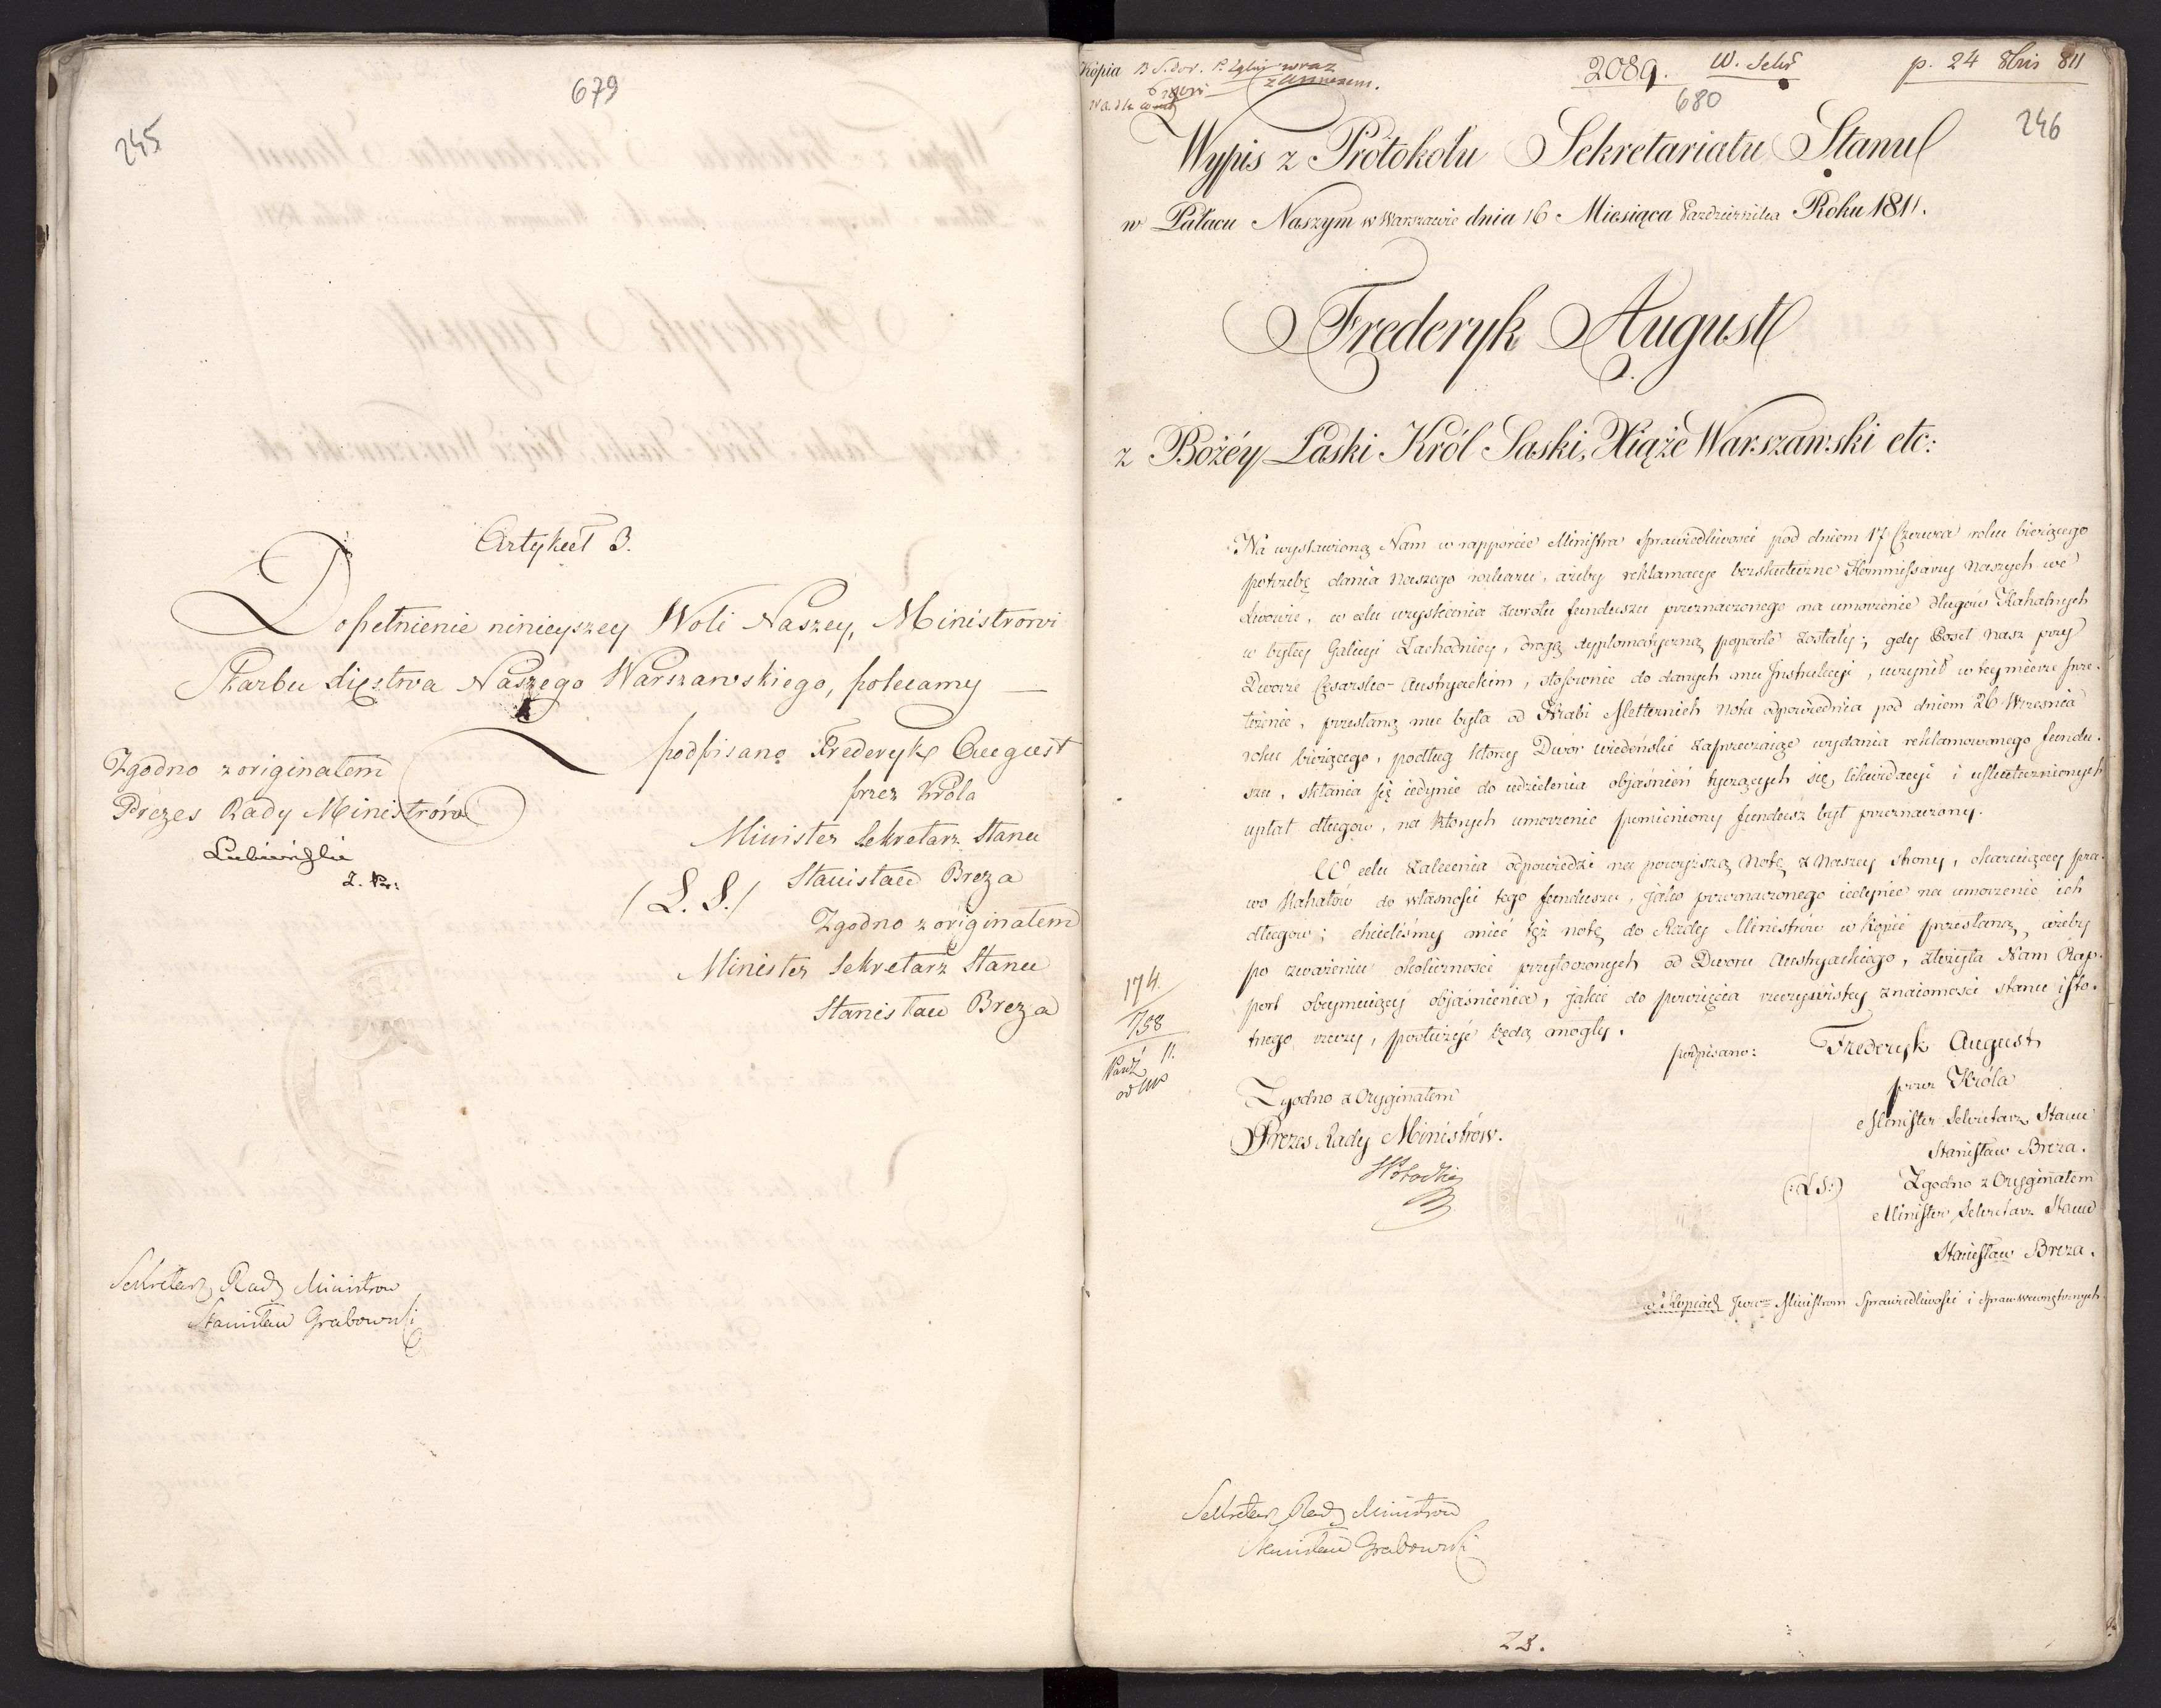 679
245
Artykuł 3.
Dopełnienie ninieyszey Woli Naszey, Ministrowi
Skarbu Xięstwa Naszego Warszawskiego, polecamy —
podpisano Frederyk August
przez Króla
Minister Sekretarz Stanu
(L. S.) Stanisław Breza
Zgodno z originałem
Minister Sekretarz Stanu
Stanisław Breza
Zgodno z originałem
Prezes Rady Ministrów
Lubieński
Z. Pr:
Sekretarz Rady Ministrow
Stanisław Grabowski
Kopia wraz
z Annexem.
2089. W. Sekr p. 24 8bris 811
680
246
Wypis z Protokołu Sekretariatu Stanu
w Pałacu Naszym w Warszawie dnia 16 Miesiąca Pazdziernika Roku 1811.
Frederyk August
z Bożéy Łaski Król Saski, Xiąże Warszawski etc:
Na wystawioną Nam w rapporcie Ministra Sprawiedliwości pod dniem 17 Czerwca roku bieżącego
potrzebę dania Naszego rozkazu, ażeby reklamacye bezskuteczne Kommissarzy Naszych we
Lwowie, w celu uzyskania zwrotu funduszu przeznaczonego na umorzenie długów Kahalnych
w byłey Galicyi Zachodniey, drogą dyplomatyczną poparte zostały; gdy Poseł nasz przy
Dworze Cesarsko-Austryackim, stosownie do danych mu Instrukcyi, uczynił w tey mierze prze-
łożenie, przesłaną mu była od Hrabi Metternich Nota odpowiednia pod dniem 26 Wrzesnia
roku bieżącego, podług ktorey Dwór wiedeński zaprzeczaiąc wydania reklamowanego fundu-
szu, skłania się iedynie do udzielenia objaśnień tyczących się likwidacyi i uskutecznionych
upłat długow, na ktorych umorzenie pomieniony fundusz był przeznaczony.
W celu zalecenia odpowiedzi na powyższą Notę z Naszey strony, okazuiącey pra-
wo Kahałów do własności tego funduszu, jako przeznaczonego iedynie na umorzenie ich
długow; chcieliśmy mieć tęż notę do Rady Ministrów w kopii przesłaną, ażeby
po zważeniu okoliczności przytoczonych od Dworu Austryackiego, złożyła Nam Rap-
port obeymuiący objaśnienia, jakie do powzięcia rzeczywistey znaiomości stanu isto-
tnego rzeczy, posłużyć będą mogły.
podpisano: Frederyk August
przez Króla
Minister Sekretarz Stanu
Stanisław Breza.
(:LS:) Zgodno z Oryginałem
Minister Sekretarz Stanu
Stanisław Breza.
174.
1758
11.
Zgodno z Oryginałem
Prezes Rady Ministrów.
w kopiach Ministrom Sprawiedliwości i Spraw wewnętrznych.
Sekretarz Rady Ministrow
Stanisław Grabowski
23.